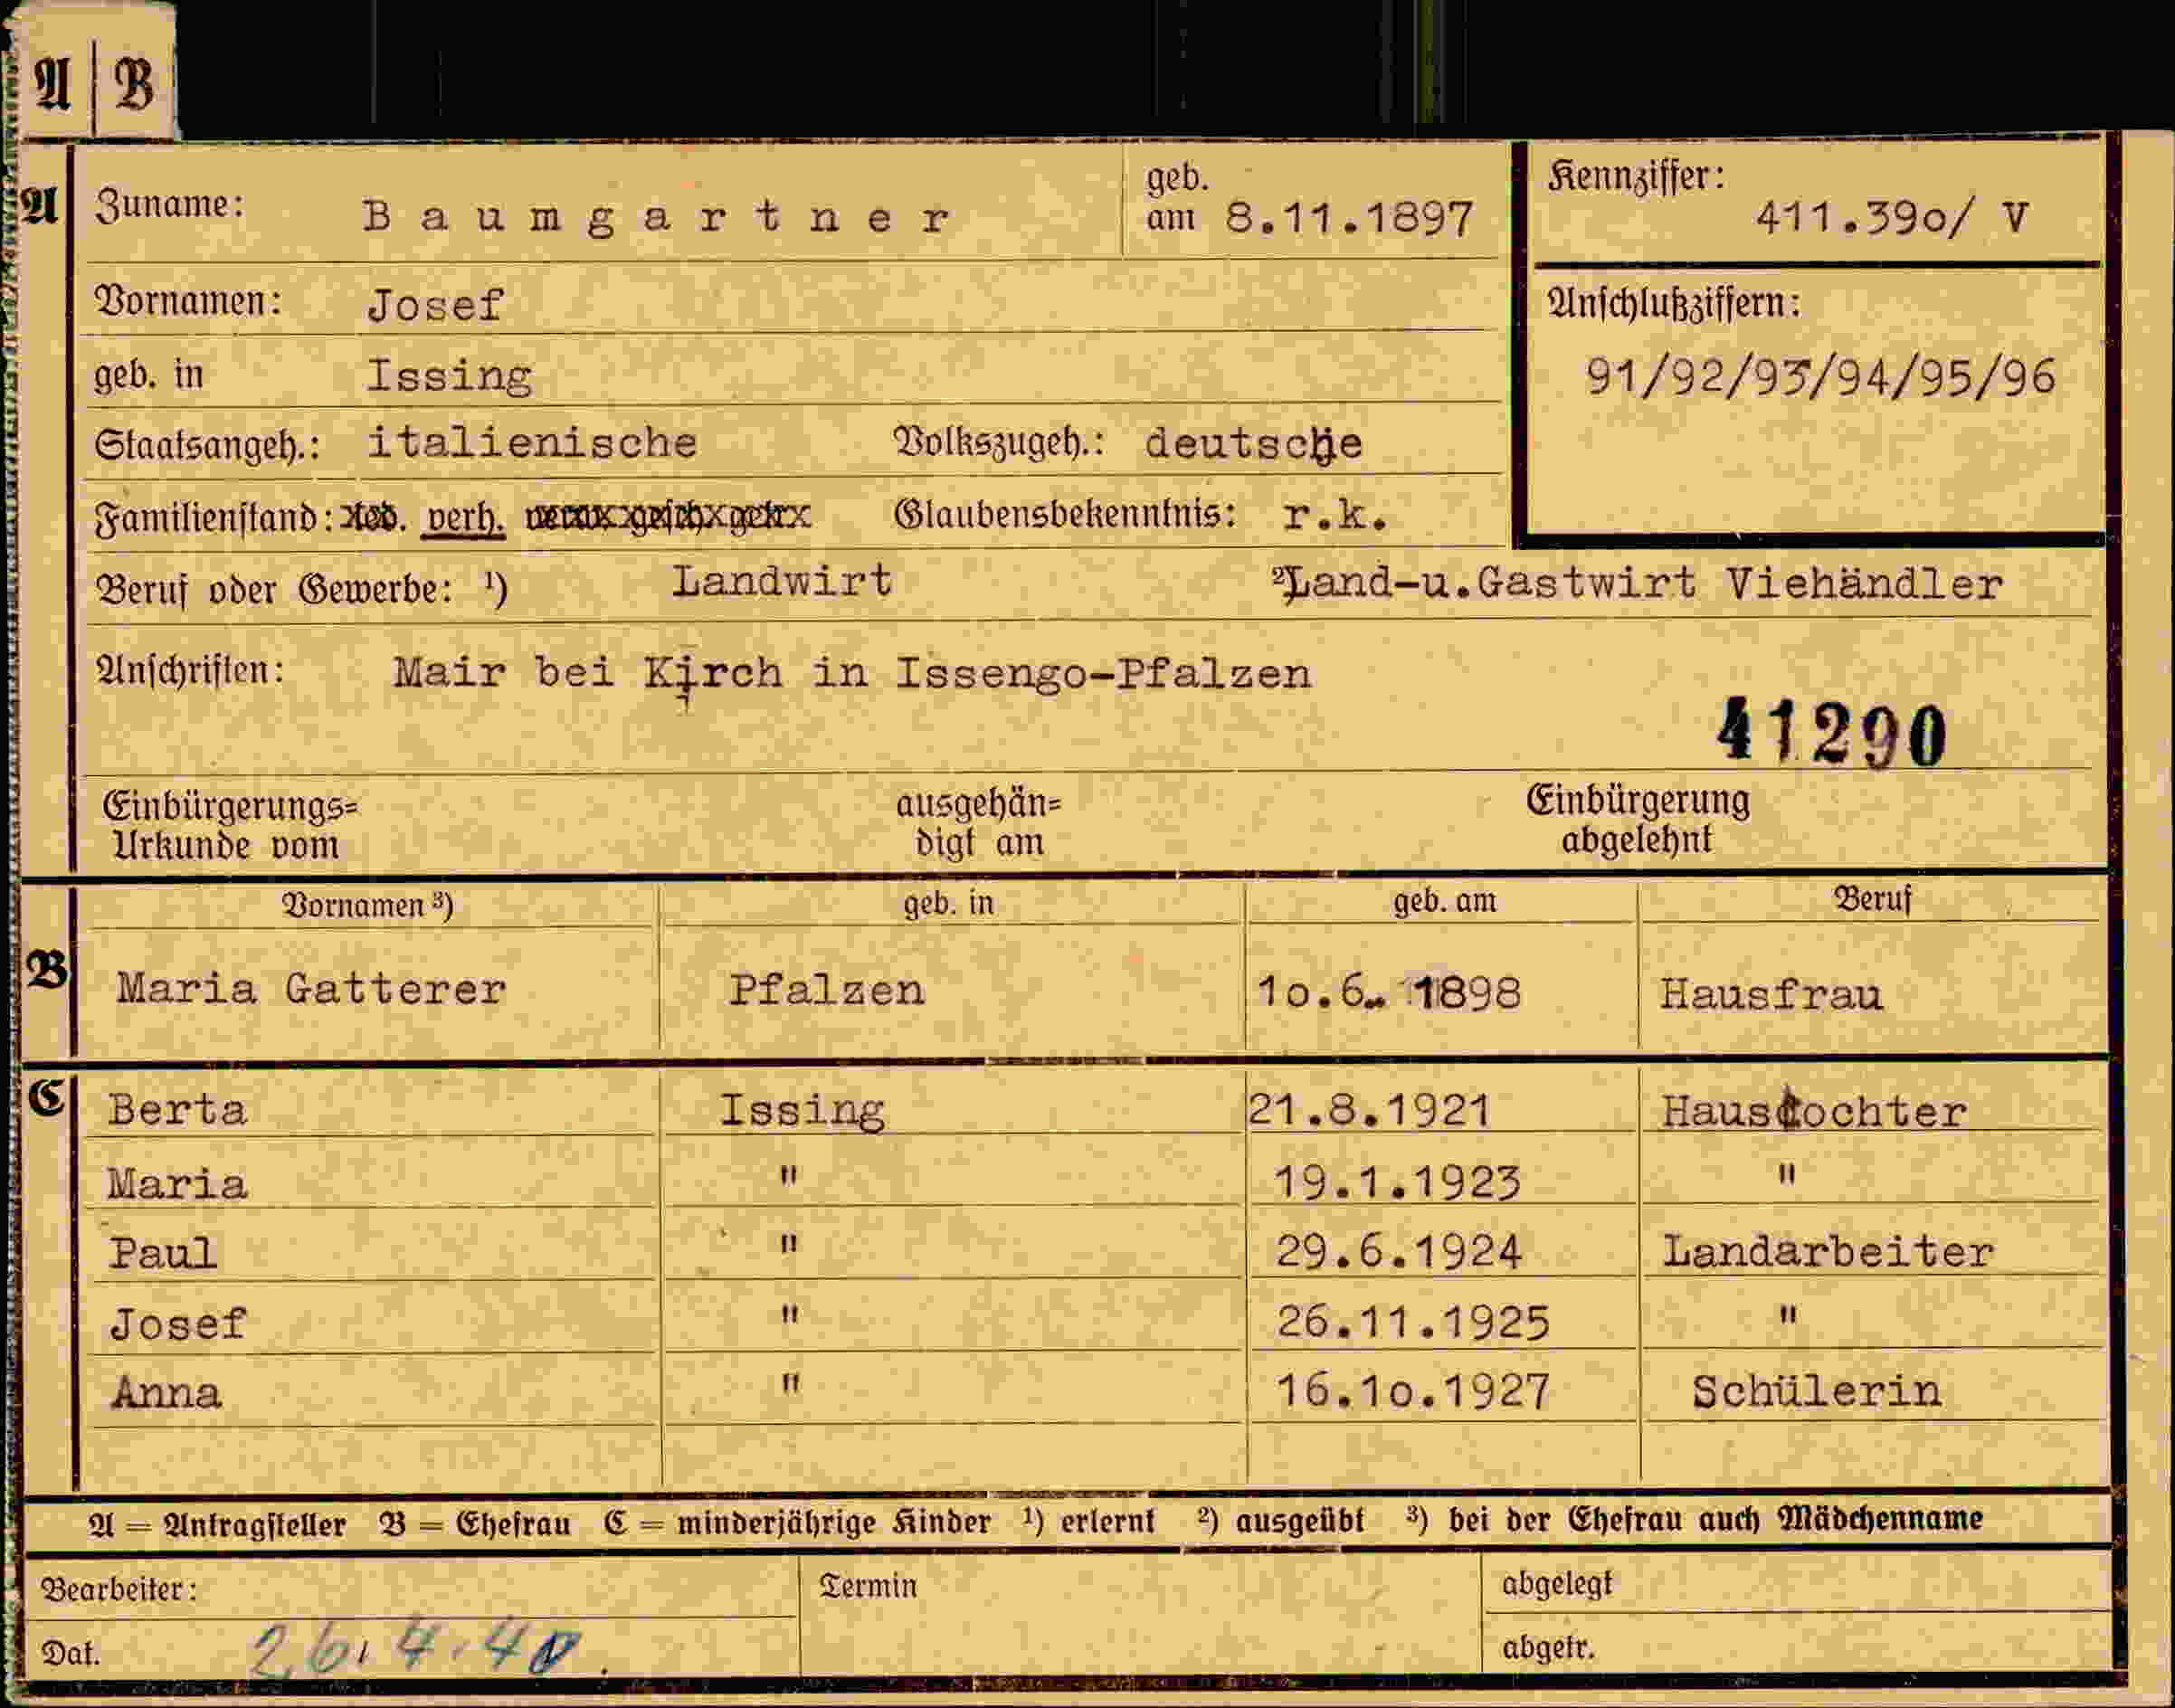 A | B
A Zuname: Baumgartner geb. am 8.11.1897 Kennziffer: 411.39o/ V
Vornamen: Josef Anschlußziffern:
geb. in Issing 91/92/93/94/95/96
Staatsangeh.: italienische Volkszugeh.: deutsche
Familienstand: led. verh. verw. gesch. getr. Glaubensbekenntnis: r.k.
Beruf oder Gewerbe: ¹) Landwirt ²) Land-u.Gastwirt Viehändler
Anschriften: Mair bei Kirch in Issengo-Pfalzen
41290
Einbürgerungs= ausgehän= Einbürgerung
Urkunde vom digt am abgelehnt
Vornamen ³) geb. in geb. am Beruf
B Maria Gatterer Pfalzen 1o.6. 1898 Hausfrau
C Berta Issing 21.8.1921 Haustochter
Maria " 19.1.1923 "
Paul " 29.6.1924 Landarbeiter
Josef " 26.11.1925 "
Anna " 16.1o.1927 Schülerin
A = Antragsteller B = Ehefrau C = minderjährige Kinder ¹) erlernt ²) ausgeübt ³) bei der Ehefrau auch Mädchenname
Bearbeiter: Termin abgelegt
Dat. 26.4.40. abgetr.